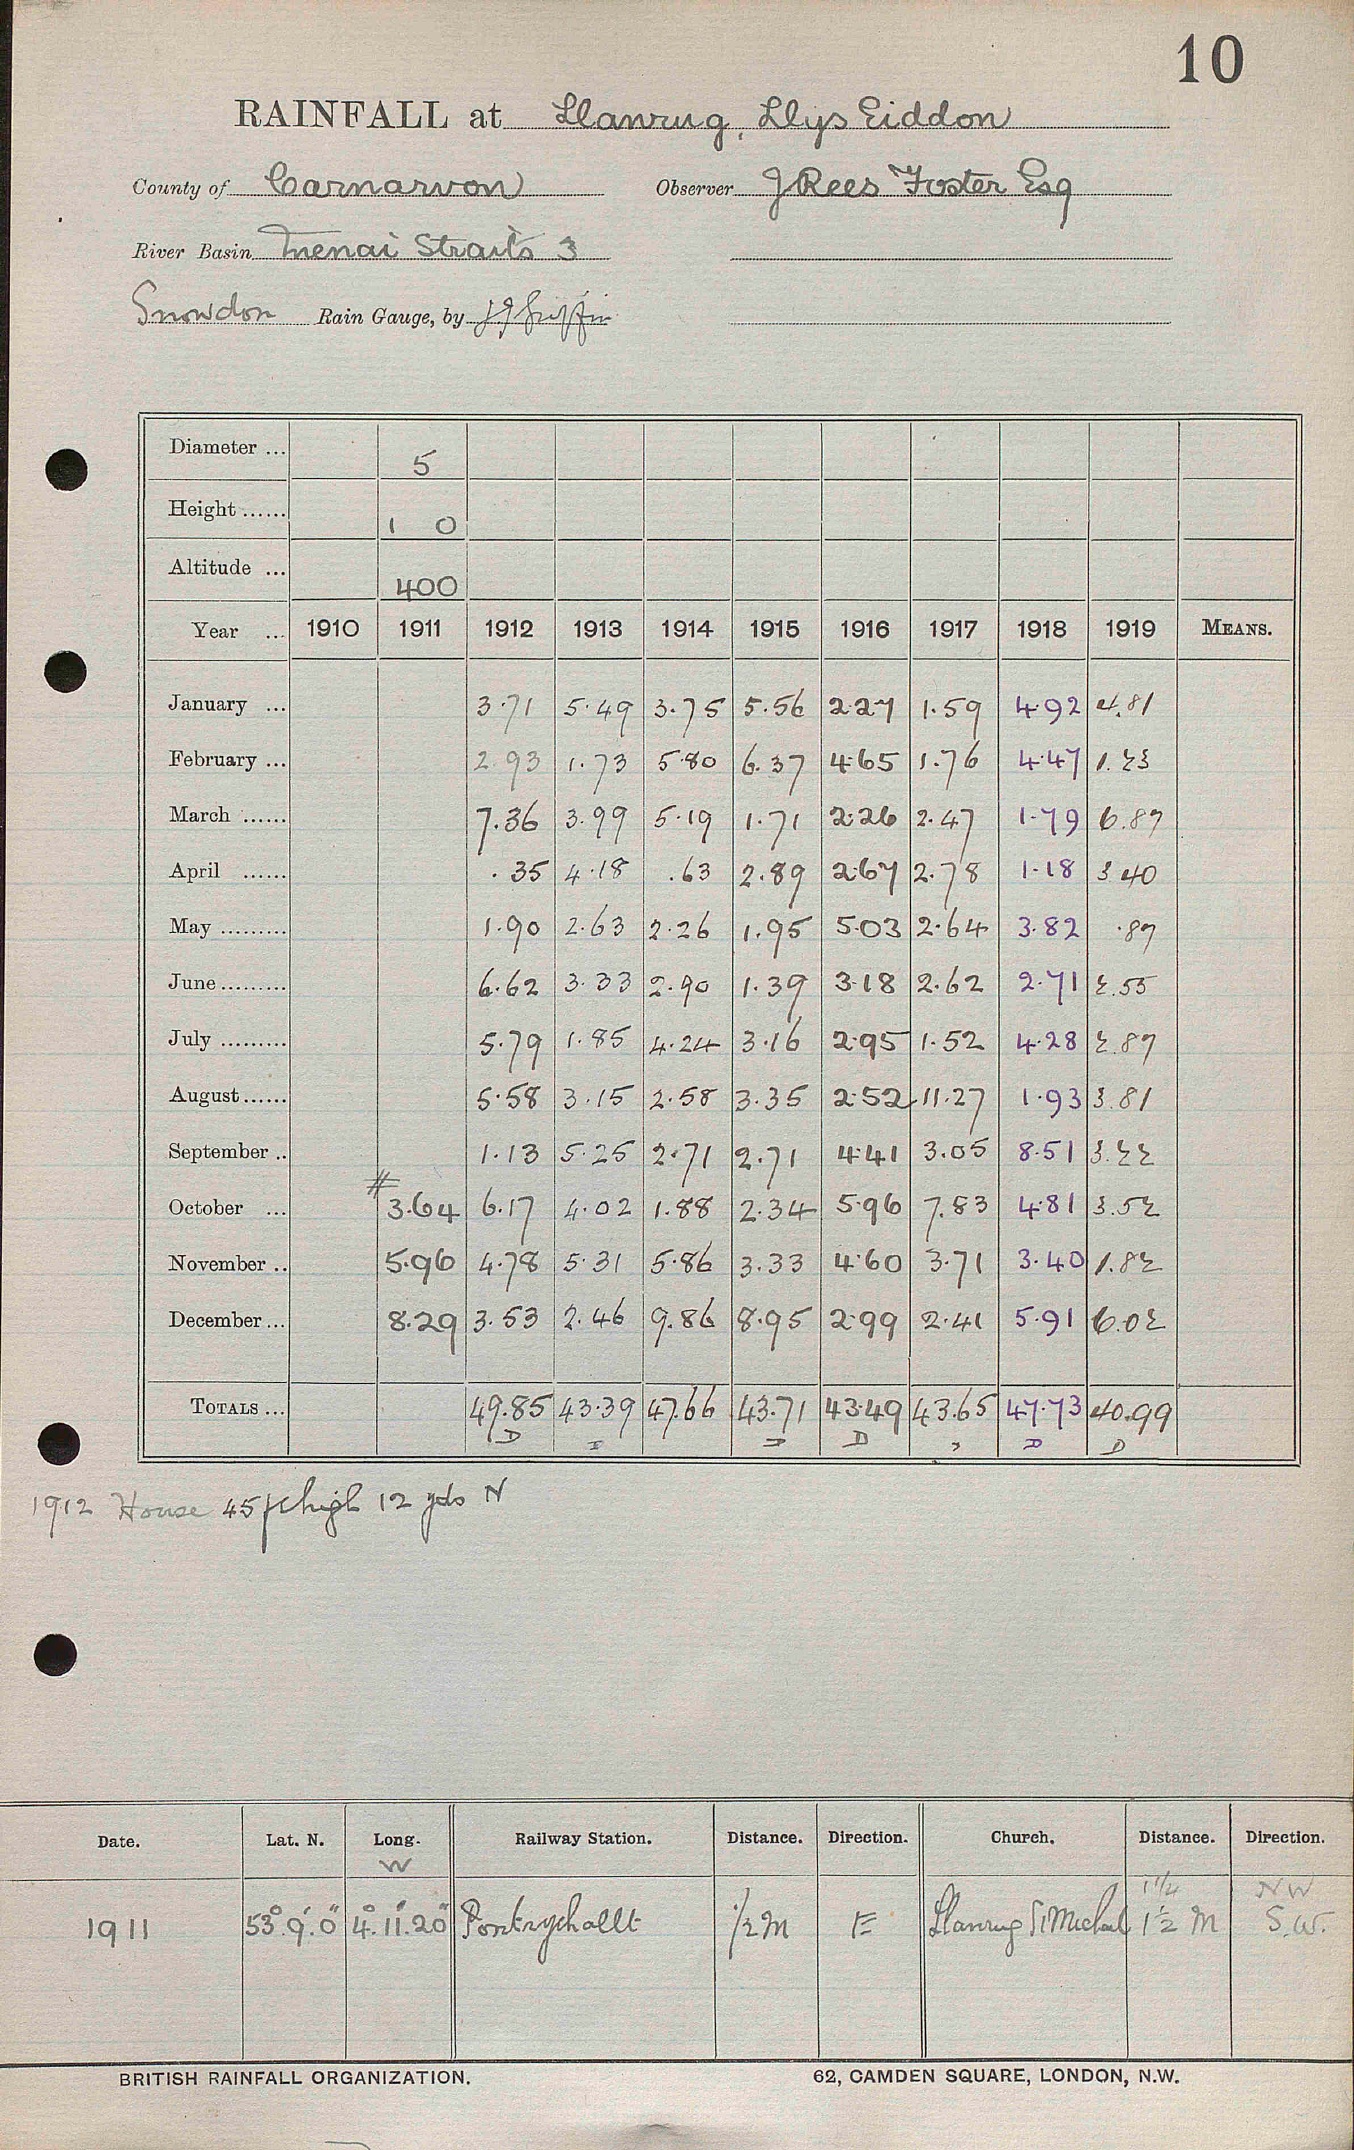 10
RAINFALL at Llanrug, Llys Eiddon
County of Carnarvon Observer J Rees Foster Esq
River Basin Menai Straits 3
Snowdon Rain Gauge, by JJ Griffin
Diameter ... 5
Height ...... 1 0
Altitude ... 400
Year ... 1910 1911 1912 1913 1914 1915 1916 1917 1918 1919 MEANS.
January ... 3.71 5.49 3.75 5.56 2.27 1.59 4.92 4.81
February ... 2.93 1.73 5.80 6.37 4.65 1.76 4.47 1.23
March ...... 7.36 3.99 5.19 1.71 2.26 2.47 1.79 6.87
April ...... .35 4.18 .63 2.89 2.67 2.78 1.18 3.40
May ......... 1.90 2.63 2.26 1.95 5.03 2.64 3.82 .87
June ......... 6.62 3.33 2.90 1.39 3.18 2.62 2.71 2.55
July ......... 5.79 1.85 4.24 3.16 2.95 1.52 4.28 2.87
August ...... 5.58 3.15 2.58 3.35 2.52 11.27 1.93 3.81
September .. 1.13 5.25 2.71 2.71 4.41 3.05 8.51 3.22
October ... # 3.64 6.17 4.02 1.88 2.34 5.96 7.83 4.81 3.52
November .. 5.96 4.78 5.31 5.86 3.33 4.60 3.71 3.40 1.82
December ... 8.29 3.53 2.46 9.86 8.95 2.99 2.41 5.91 6.02
TOTALS ... 49.85 43.39 47.66 43.71 43.49 43.65 47.73 40.99
D D D D D
1912 House 45 ft high 12 yds N
Date. Lat. N. Long. W Railway Station. Distance. Direction. Church. Distance. Direction.
1 1/4 NW
1911 53° 9' 0" 4° 11' 20" Pontrythallt 1/2 M E Llanrug St Michael 1 1/2 M S.W.
BRITISH RAINFALL ORGANIZATION. 62, CAMDEN SQUARE, LONDON, N.W.